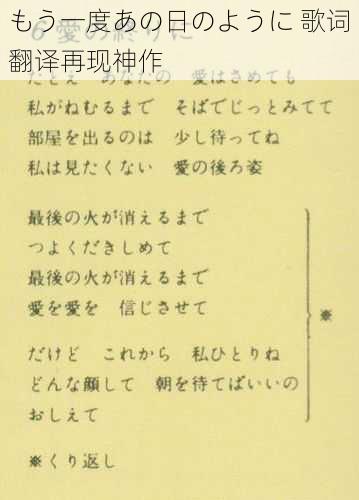 もう一度あの日のように 歌词
翻译再现神作
6 愛の終りに
たとえ あなたの 愛はさめても
私がねむるまで そばでじっとみてて
部屋を出るのは 少し待ってね
私は見たくない 愛の後ろ姿
最後の火が消えるまで
つよくだきしめて
最後の火が消えるまで
愛を愛を 信じさせて
※
だけど これから 私ひとりね
どんな顔して 朝を待てばいいの
おしえて
※くり返し